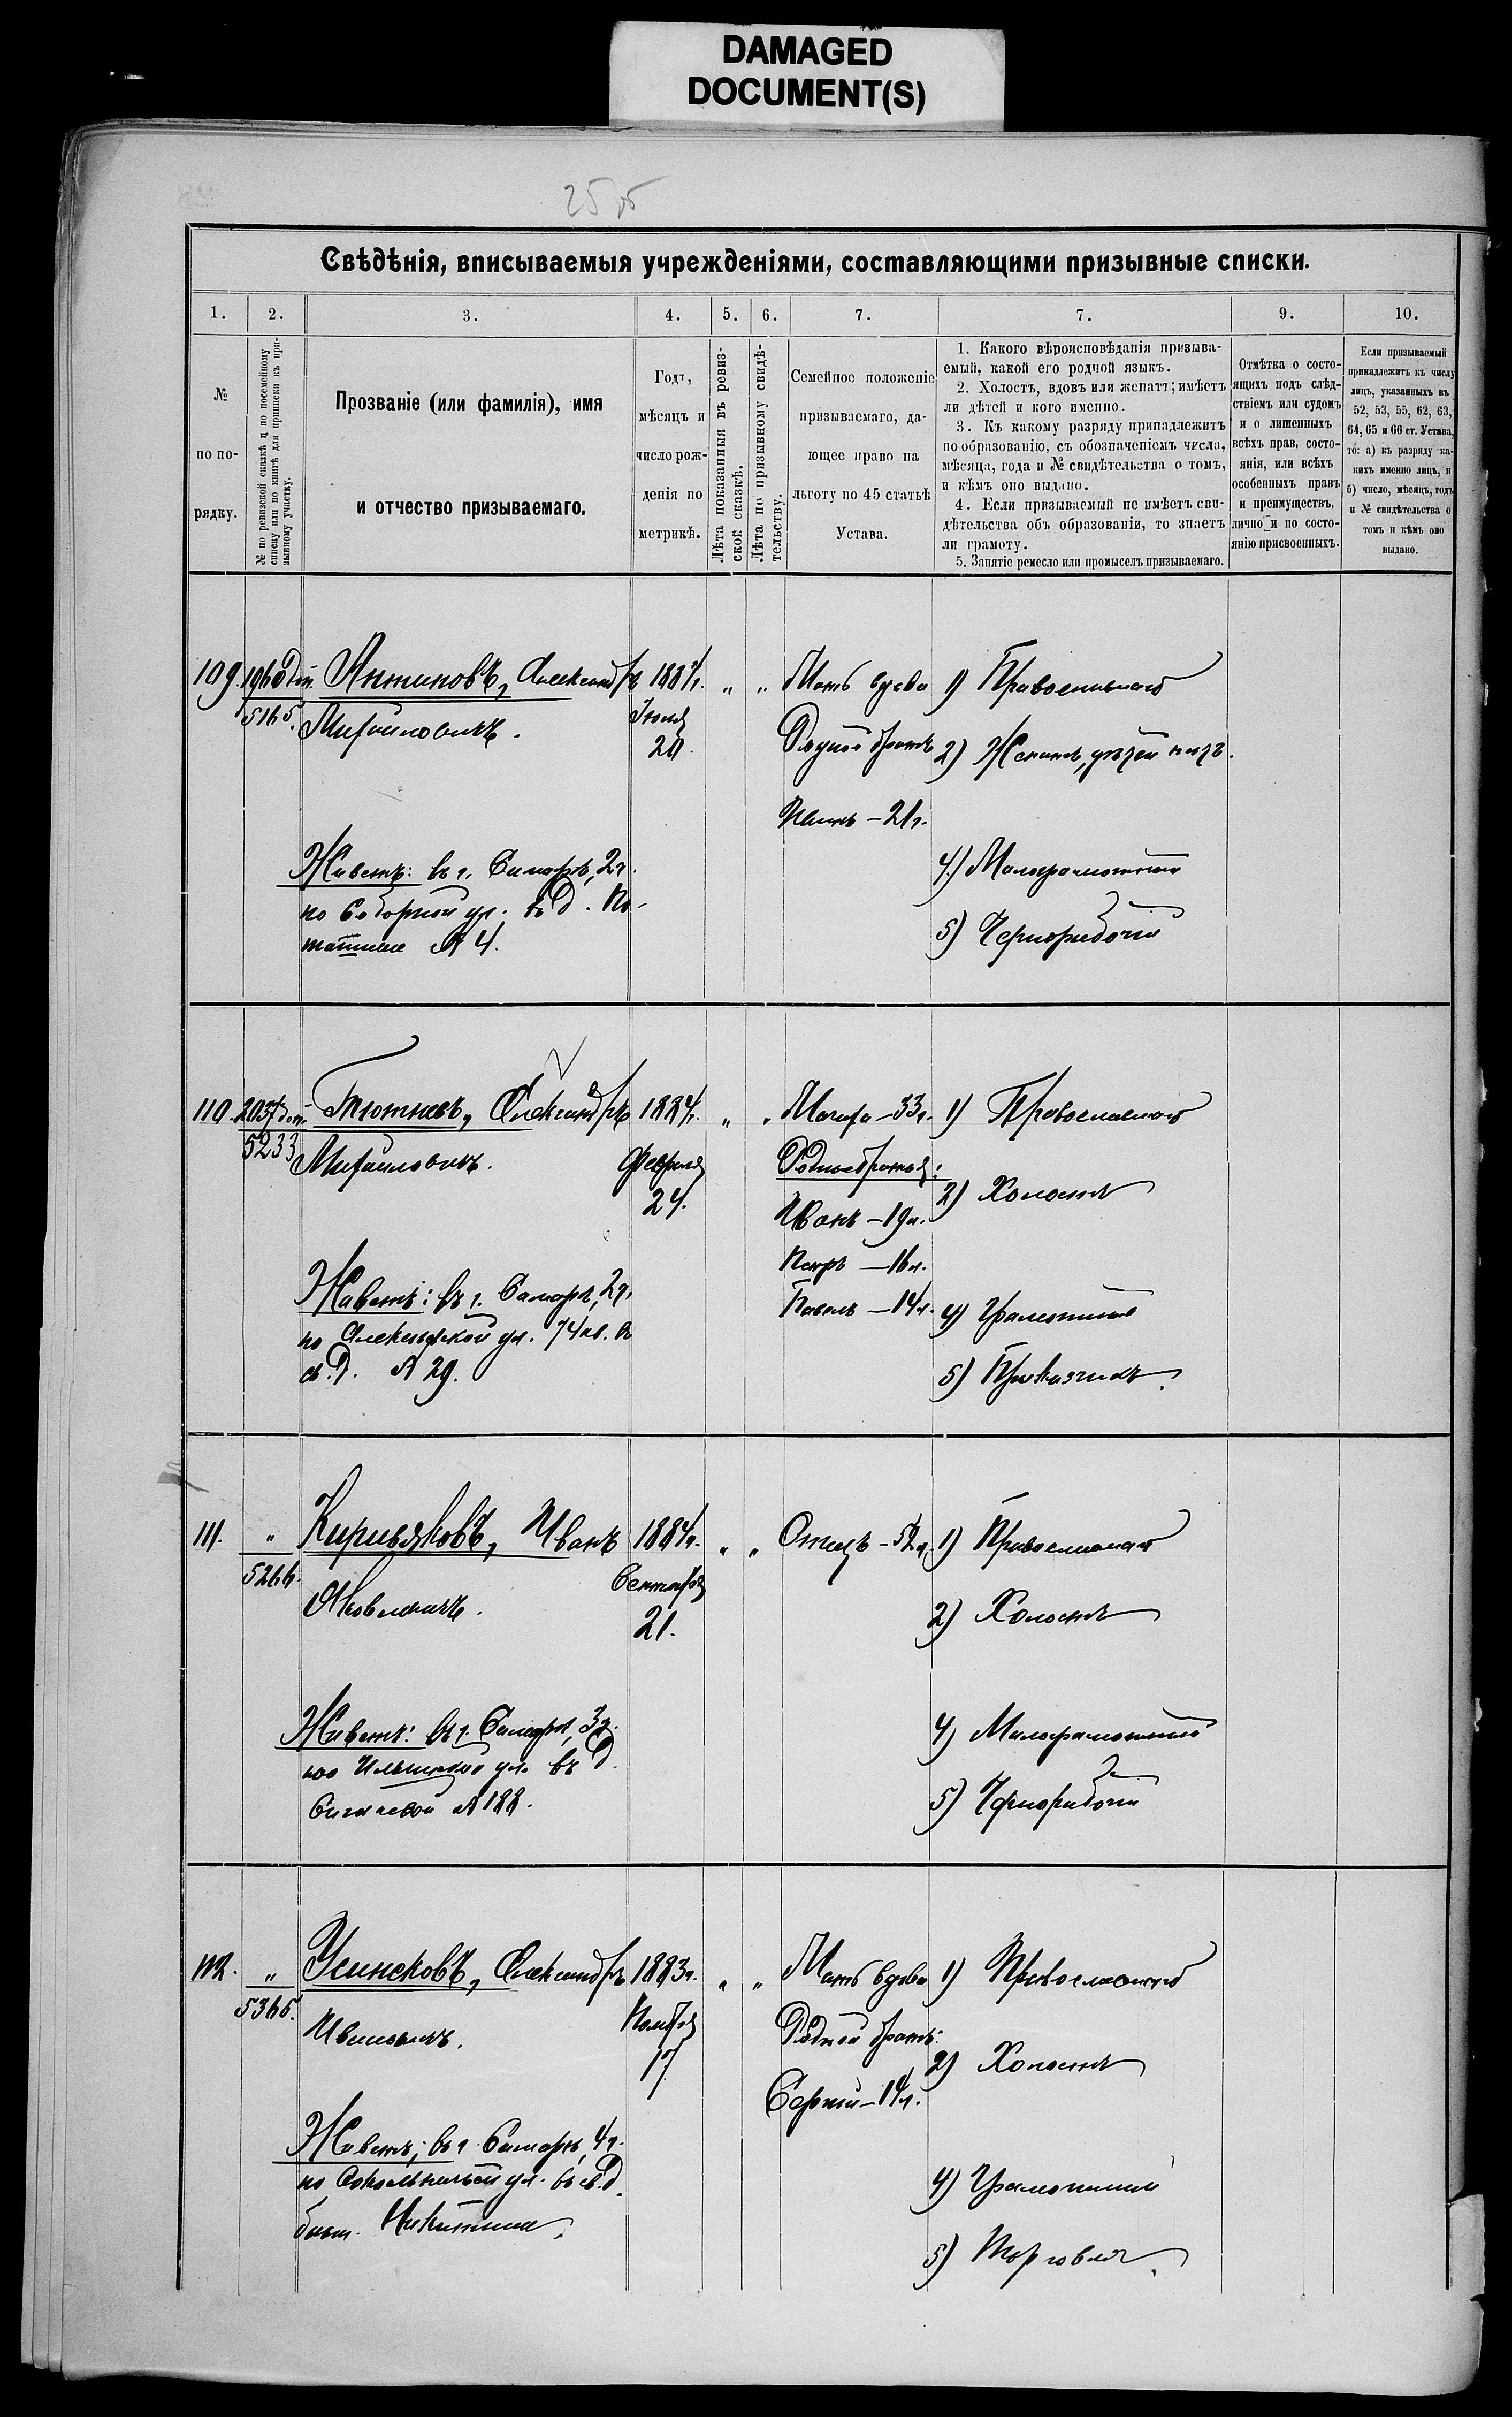 DAMAGED
DOCUMENT(S)
25
Свѣдѣнія, вписываемыя учрежденіями, составляющими призывные списки.
1. 2. 3. 4. 5. 6. 7. 7. 9. 10.
№
по по-
рядку.
№ по ревизской сказкѣ и по посемейному
списку или по книгѣ для приписки къ при-
зывному участку.
Прозваніе (или фамилія), имя
и отчество призываемаго.
Годъ,
мѣсяцъ и
число рож-
денія по
метрикѣ.
Лѣта показанныя въ ревиз-
ской сказкѣ.
Лѣта по призывному свидѣ-
тельству.
Семейное положеніе
призываемаго, да-
ющее право на
льготу по 45 статьѣ
Устава.
1. Какого вѣроисповѣданія призыва-
емый, какой его родной языкъ.
2. Холостъ, вдовъ или женатъ; имѣетъ
ли дѣтей и кого именно.
3. Къ какому разряду принадлежитъ
по образованію, съ обозначеніемъ числа,
мѣсяца, года и № свидѣтельства о томъ,
и кѣмъ оно выдано.
4. Если призываемый не имѣетъ сви-
дѣтельства объ образованіи, то знаетъ
ли грамоту.
5. Занятіе ремесло или промыселъ призываемаго.
Отмѣтка о состо-
ящихъ подъ слѣд-
ствіемъ или судомъ
и о лишенныхъ
всѣхъ прав, состо-
янія, или всѣхъ
особенныхъ правъ
и преимуществъ,
лично и по состо-
янію присвоенныхъ.
Если призываемый
принадлежитъ къ числу
лицъ, указанныхъ въ
52, 53, 55, 62, 63,
64, 65 и 66 ст. Устава,
то: а) къ разряду ка-
кихъ именно лицъ, и
б) число, мѣсяцъ, годъ
и № свидѣтельства о
томъ и кѣмъ оно
выдано.
109. Антиповъ, Александръ 1884г. „ „ Мать вдова 1) Православнаго
5165. Михайловичъ. Іюля Родной братъ 2) Женатъ, дѣтей нѣтъ.
20.
Иванъ – 21г.
Живетъ: въ г. Самарѣ, 2ч. 4) Малограмотный
по Соборной ул. въ д. 5) Чернорабочій
№ 4.
110. Тютневъ, Александръ 1884г. „ „ Мачиха – 33л. 1) Православнаго
5233 Михайловичъ. Февраля Родные братья: 2) Холостъ
24. Иванъ – 19л.
Петръ – 16л.
Живетъ: въ г. Самарѣ, 2ч. Павелъ – 14л. 4) Грамотный
по Алексѣевской ул. 74 кв. въ
св. д. № 29. 5) Приказчикъ.
111. „ Кирьяковъ, Иванъ 1884г. „ „ Отецъ – 52л. 1) Православнаго
5266. Яковлевичъ. Сентября 2) Холостъ
21.
Живетъ: въ г. Самарѣ, 3ч. 4) Малограмотный
по Ильинской ул. въ д. 5) Чернорабочій
№ 188.
112. „ Усинсковъ, Александръ 1883г. „ „ Мать вдова 1) Православнаго
5365. Ивановичъ. Ноября Родной братъ: 2) Холостъ
17. Сергѣй – 14л.
Живетъ: въ г. Самарѣ, 4ч. 4) Грамотный
по Сокольничьей ул. въ св. д.
бывш. Никитина. 5) Торговля.